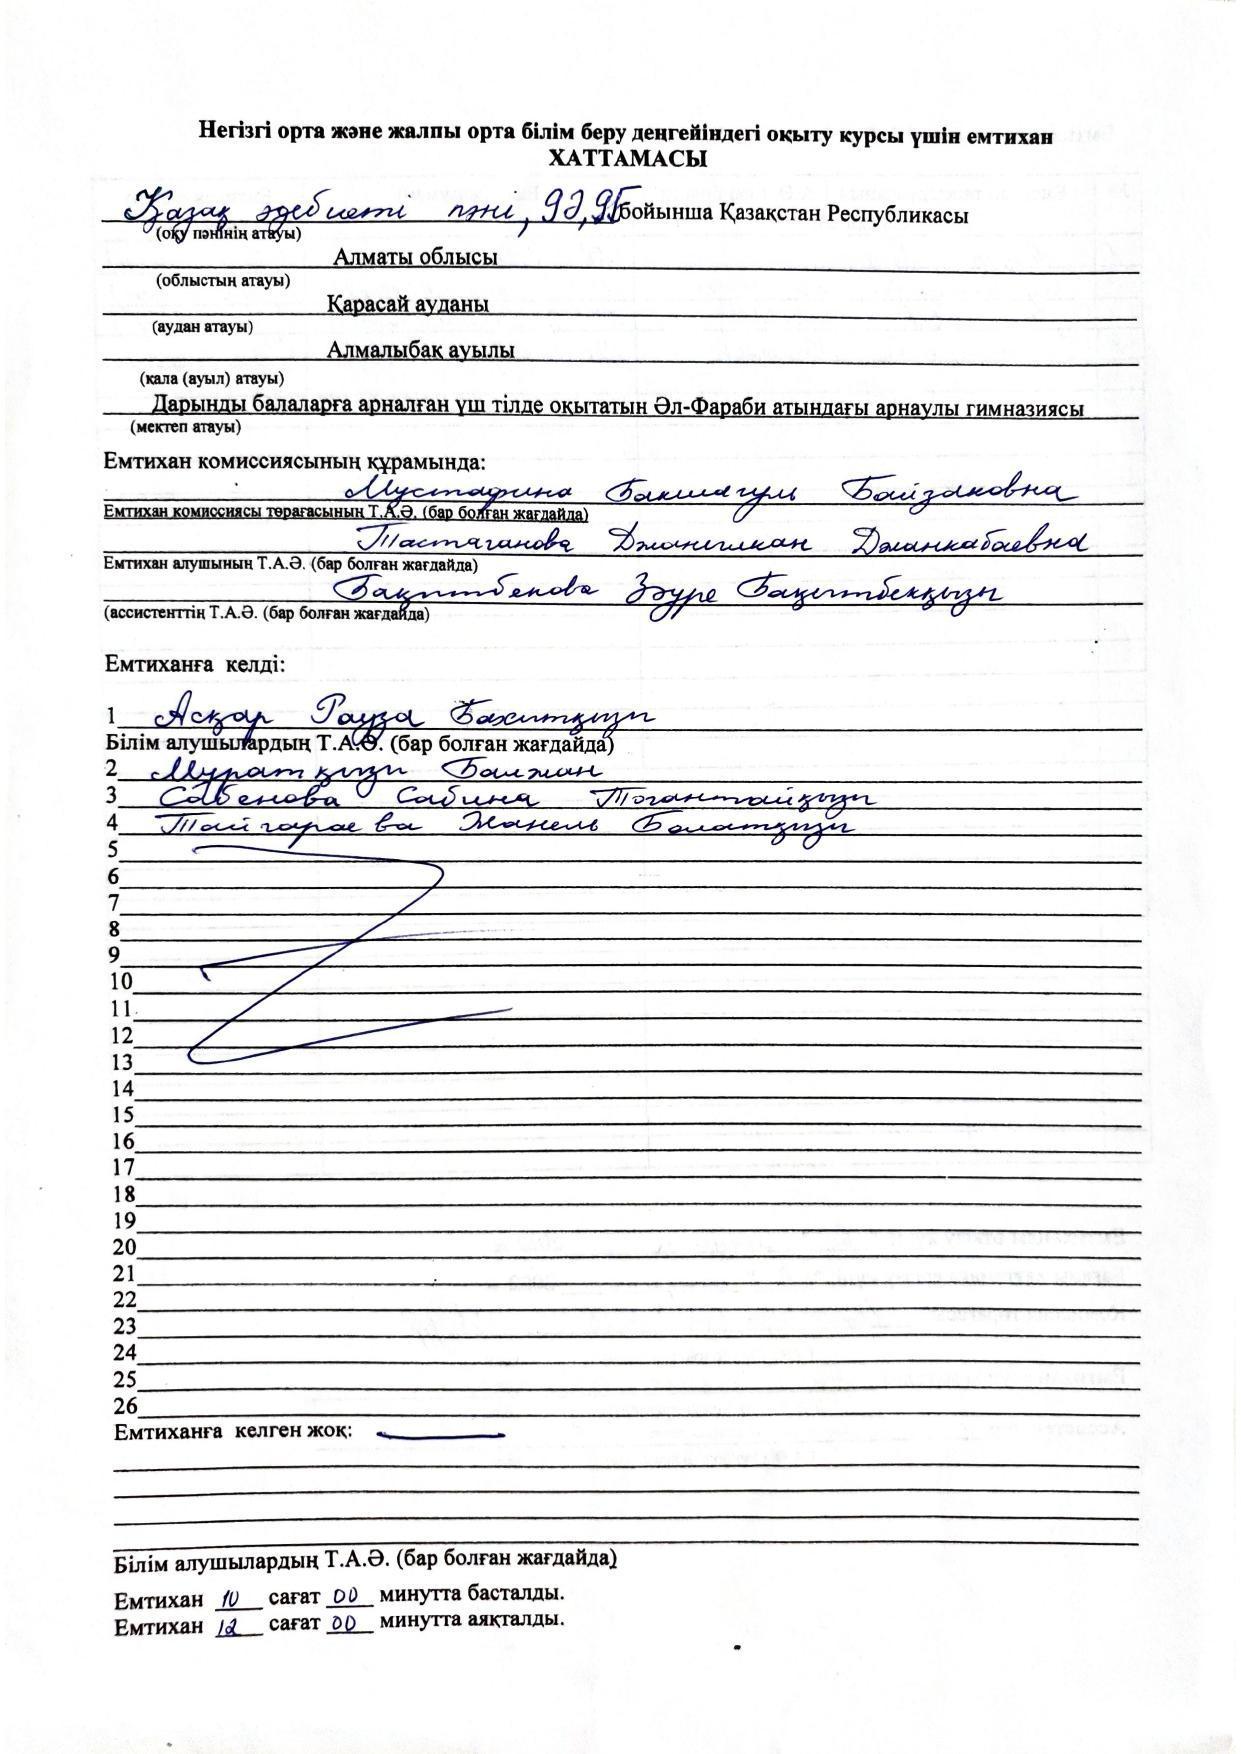 Негізгі орта және жалпы орта білім беру деңгейіндегі оқыту курсы үшін емтихан
ХАТТАМАСЫ
Қазақ әдебиеті пәні, 9Ә, 9Б бойынша Қазақстан Республикасы
(оқу пәнінің атауы)
Алматы облысы
(облыстың атауы)
Қарасай ауданы
(аудан атауы)
Алмалыбақ ауылы
(кала (ауыл) атауы)
Дарынды балаларға арналған үш тілде оқытатын Әл-Фараби атындағы арнаулы гимназиясы
(мектеп атауы)
Емтихан комиссиясының құрамында:
Мустафина Бакшагуль Байзаковна
Емтихан комиссиясы төрағасының Т.А.Ә. (бар болған жағдайда)
Тастаганова Джанилкан Джанкабаевна
Емтихан алушының Т.А.Ә. (бар болған жағдайда)
Бақытбекова Зәуре Бақытбекқызы
(ассистенттің Т.А.Ә. (бар болған жағдайда)
Емтиханға келді:
1 Асқар Рауза Бахитқызы
Білім алушылардың Т.А.Ә. (бар болған жағдайда)
2 Мұратқызы Балжан
3 Сабенова Сабина Тоғантайқызы
4 Тайгараева Жанель Болатқызы
5
6
7
8
9
10
11
12
13
14
15
16
17
18
19
20
21
22
23
24
25
26
Емтиханға келген жоқ:
Білім алушылардың Т.А.Ә. (бар болған жағдайда)
Емтихан 10 сағат 00 минутта басталды.
Емтихан 12 сағат 00 минутта аяқталды.